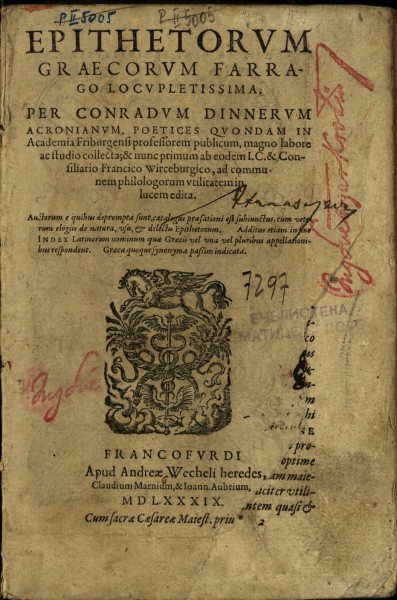 P II 5005
P II 5005
EPITHETORVM
GRAECORVM FARRA-
GO LOCVPLETISSIMA;
PER CONRADVM DINNERVM
ACRONIANVM, POETICES QVONDAM IN
Academia Friburgensi professorem publicum, magno labore
ac studio collecta; & nunc primum ab eodem I.C. & Con-
siliario Francico Wirceburgico, ad commu-
nem philologorum vtilitatem in
lucem edita.
Auctorum e quibus deprompta sunt, catalogus præfationi est subiunctus, cum vete-
rum elogiis de natura, vsu, & delectu Epithetorum. Additus etiam in fine
INDEX Latinorum nominum quæ Græcis vel vna vel pluribus appellationi-
bus respondent. Græca quoque synonyma passim indicata.
7297
БИБЛИОТЕКА
МАТИЦЕ
FRANCOFVRDI
Apud Andreæ Wecheli heredes,
Claudium Marnium, & Ioann. Aubrium,
MDLXXXIX.
Cum sacræ Cæsareæ Maiest. priu
m
hi
NE
pro-
optime
am maie-
aciter vtili-
ntem quasi &
2